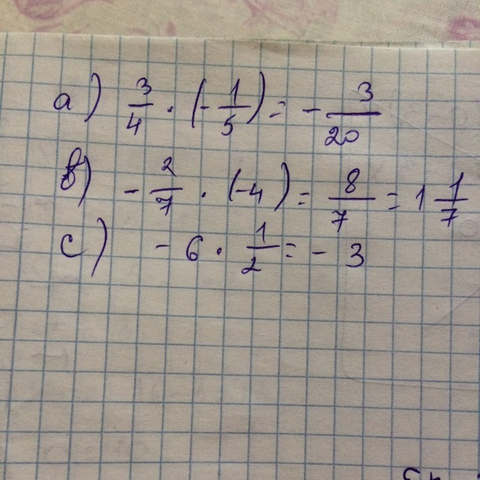 a) 3/4 · (-1/5) = - 3/20
b) - 2/7 · (-4) = 8/7 = 1 1/7
c) - 6 · 1/2 = - 3